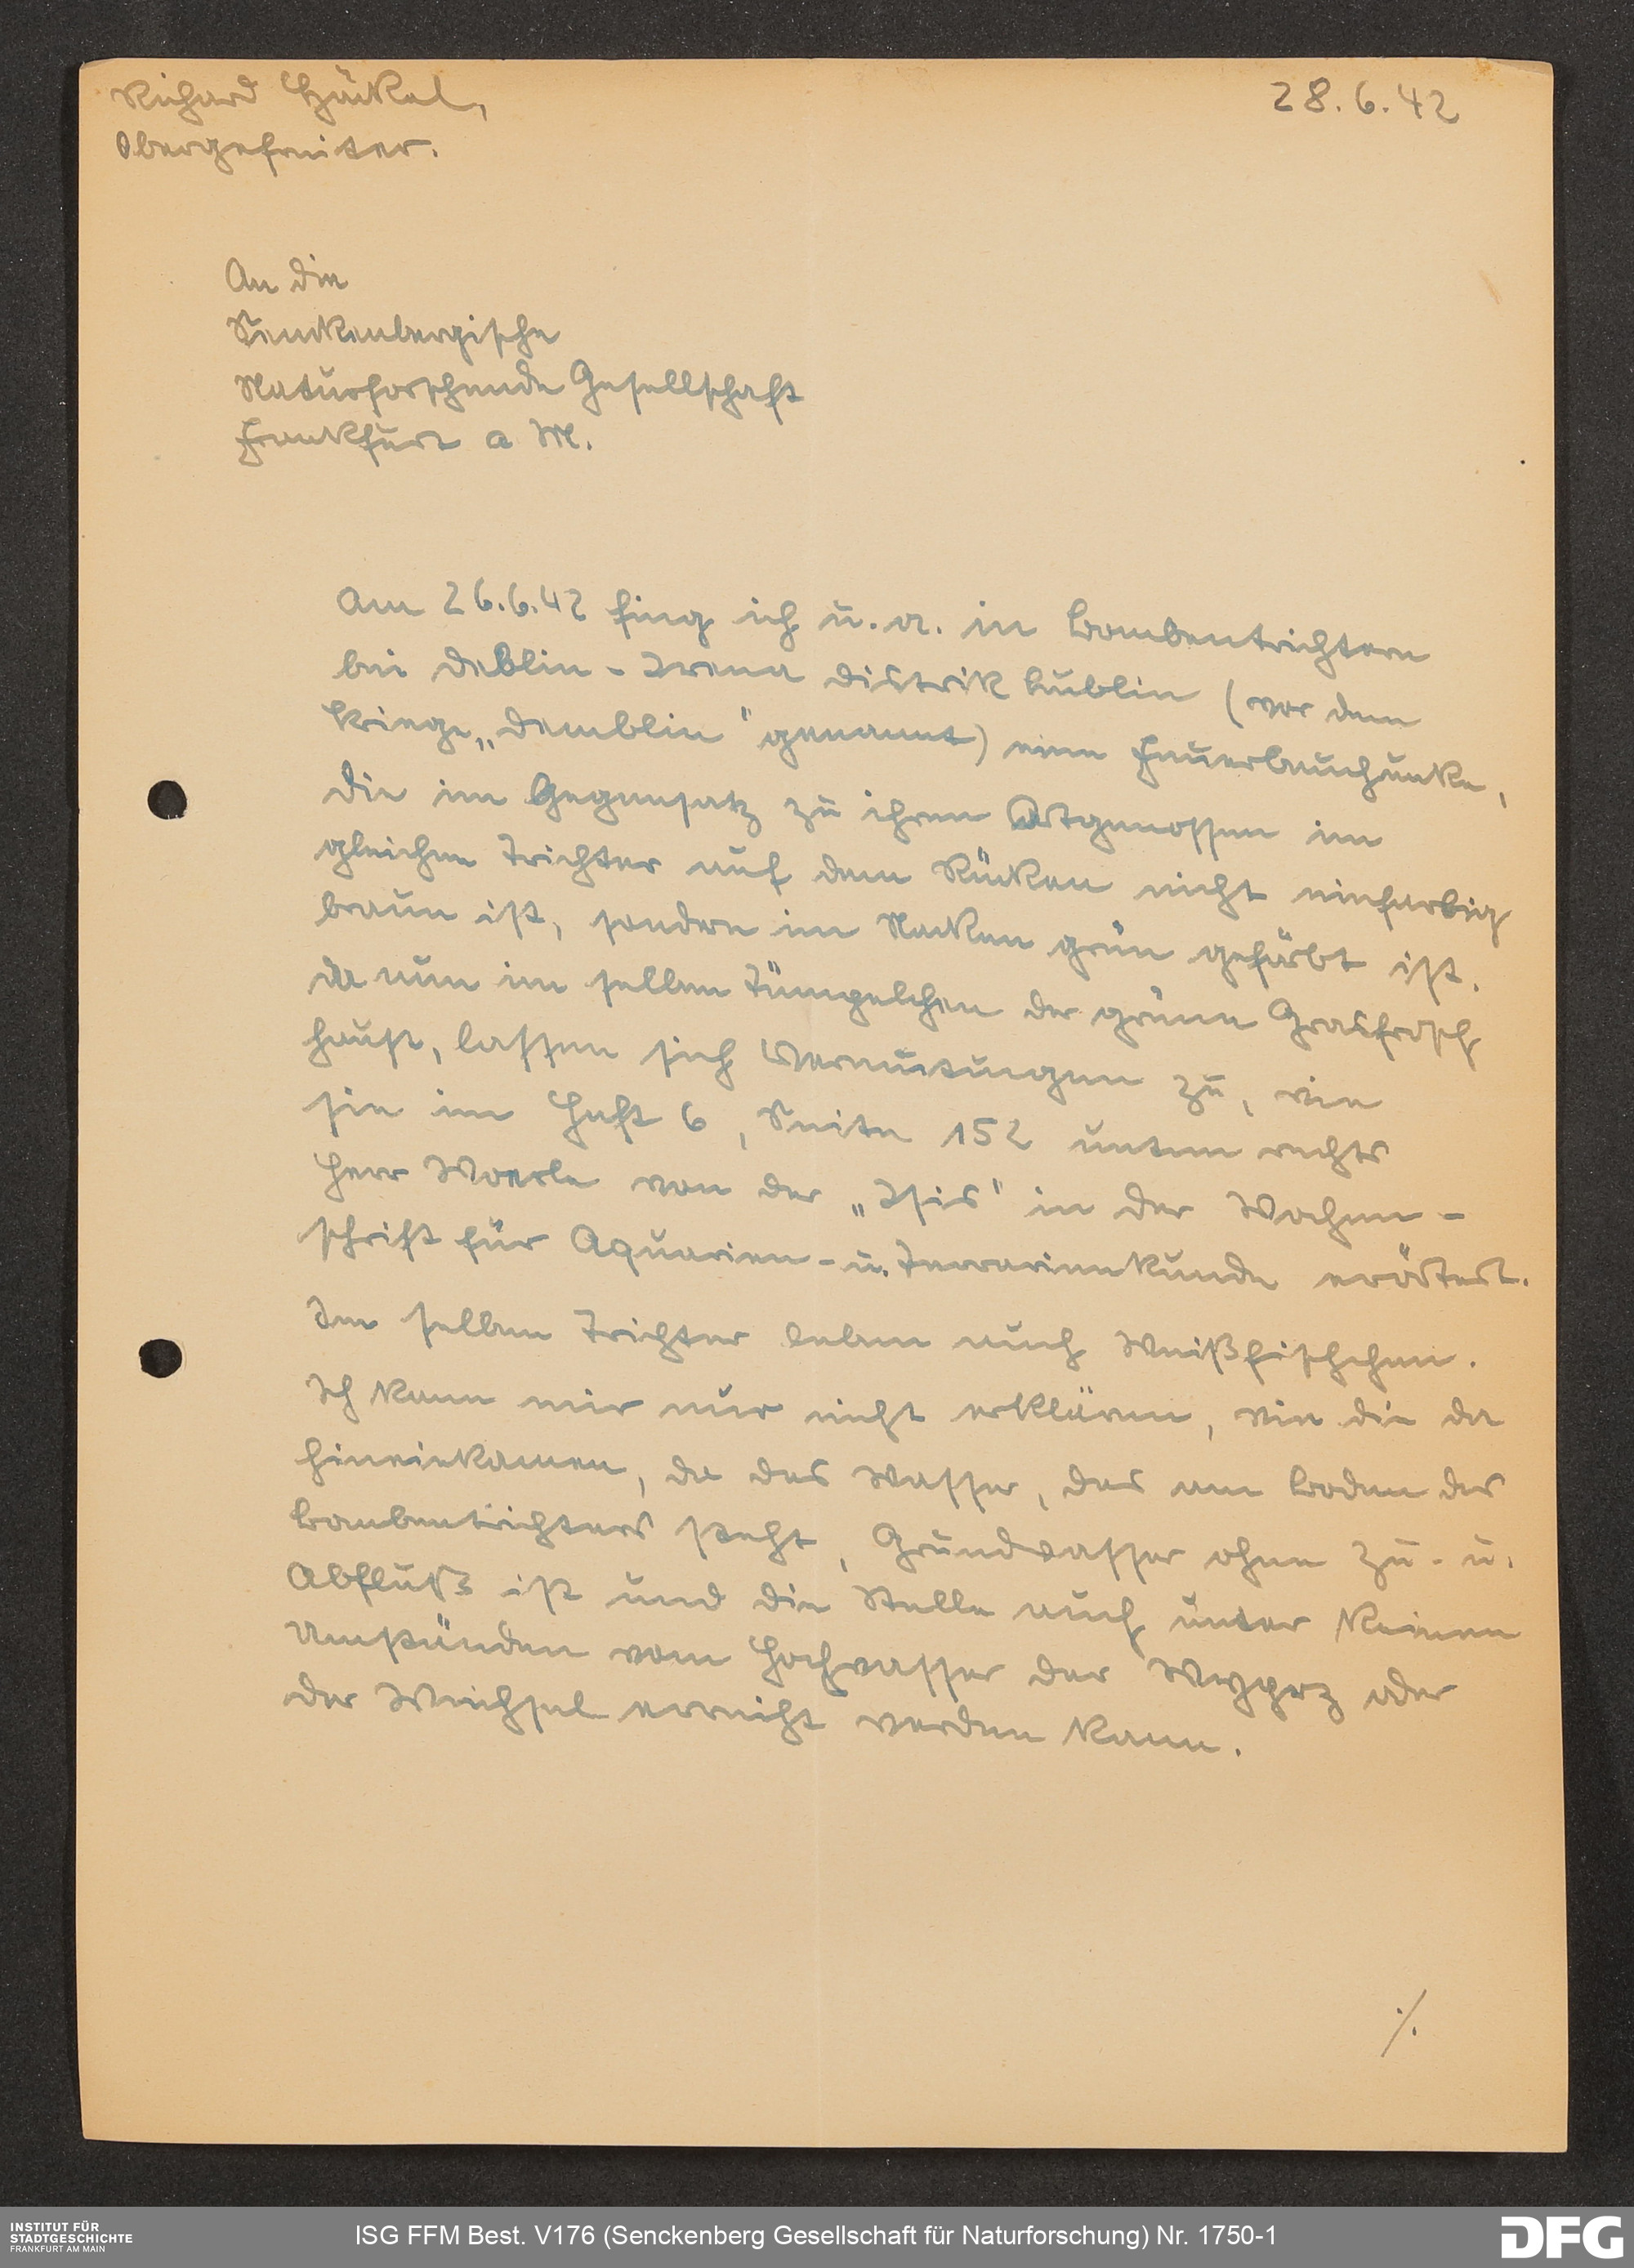 Richard Häckel,
28.6.42
Obergefreiter.
An die
Senckenbergische
Naturforschende Gesellschaft
Frankfurt a M.
Am 26.6.42 fing ich u. a. in Bombentrichtern
bei Deblin - Irena Distrik Lublin (vor dem
Kriege „Demblin" genannt) eine Feuerbauchunke,
die im Gegensatz zu ihren Artgenossen im
gleichen Trichter auf dem Rücken nicht einfarbig
braun ist, sondern im Nacken grün gefärbt ist.
Da nun im selben Tümpelchen der grüne Grasfrosch
haust, lassen sich Vermutungen zu, wie
sie im Heft 6, Seite 152 unten rechts
Herr Woerle von der „Isis" in der Wochen-
schrift für Aquarien- u. Terrarienkunde erörtert.
Im selben Trichter leben auch Weißfischchen.
Ich kann mir nur nicht erklären, wie die da
hineinkamen, da das Wasser, das am Boden des
Bombentrichters steht, Grundwasser ohne Zu- u.
Abfluß ist und die Stelle auch unter keinen
Umständen vom Hochwasser der Wyprz oder
der Weichsel erreicht werden kann.
./.
INSTITUT FÜR
STADTGESCHICHTE
FRANKFURT AM MAIN
ISG FFM Best. V176 (Senckenberg Gesellschaft für Naturforschung) Nr. 1750-1
DFG